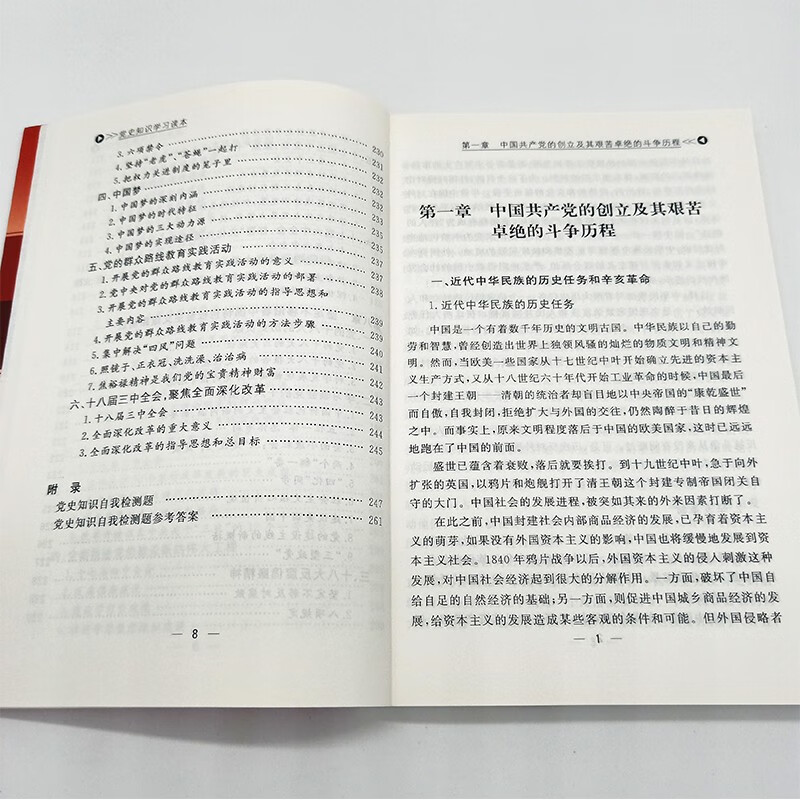 党史知识学习读本
3. 六项禁令 230
4. 坚持“老虎”、“苍蝇”一起打 231
5. 把权力关进制度的笼子里 231
四、中国梦 232
1. 中国梦的深刻内涵 232
2. 中国梦的时代特征 233
3. 中国梦的三大动力源 234
4. 中国梦的实现途径 235
五、党的群众路线教育实践活动
1. 开展党的群众路线教育实践活动的意义
2. 党中央对党的群众路线教育实践活动的部署
3. 开展党的群众路线教育实践活动的指导思想和
主要内容 239
4. 开展党的群众路线教育实践活动的方法步骤 239
5. 集中解决“四风”问题 240
6. 照镜子、正衣冠、洗洗澡、治治病 241
7. 焦裕禄精神是我们党的宝贵精神财富 242
六、十八届三中全会，聚焦全面深化改革 243
1. 十八届三中全会 243
2. 全面深化改革的重大意义 244
3. 全面深化改革的指导思想和总目标 245
附 录
党史知识自我检测题 247
党史知识自我检测题参考答案 261
— 8 —
第一章 中国共产党的创立及其艰苦卓绝的斗争历程
第一章 中国共产党的创立及其艰苦
卓绝的斗争历程
一、近代中华民族的历史任务和辛亥革命
1. 近代中华民族的历史任务
中国是一个有着数千年历史的文明古国。中华民族以自己的勤
劳和智慧，曾经创造出世界上独领风骚的灿烂的物质文明和精神文
明。然而，当欧美一些国家从十七世纪中叶开始确立先进的资本主
义生产方式，又从十八世纪六十年代开始工业革命的时候，中国最后
一个封建王朝——清朝的统治者却盲目地以中央帝国的“康乾盛世”
而自傲，自我封闭，拒绝扩大与外国的交往，仍然陶醉于昔日的辉煌
之中。而事实上，原来文明程度落后于中国的欧美国家，这时已远远
地跑在了中国的前面。
盛世已蕴含着衰败，落后就要挨打。到十九世纪中叶，急于向外
扩张的英国，以鸦片和炮舰打开了清王朝这个封建专制帝国闭关自
守的大门。中国社会的发展进程，被突如其来的外来因素打断了。
在此之前，中国封建社会内部商品经济的发展，已孕育着资本主
义的萌芽，如果没有外国资本主义的影响，中国也将缓慢地发展到资
本主义社会。1840年鸦片战争以后，外国资本主义的侵入刺激这种
发展，对中国社会经济起到很大的分解作用。一方面，破坏了中国自
给自足的自然经济的基础；另一方面，则促进中国城乡商品经济的发
展，给资本主义的发展造成某些客观的条件和可能。但外国侵略者
— 1 —